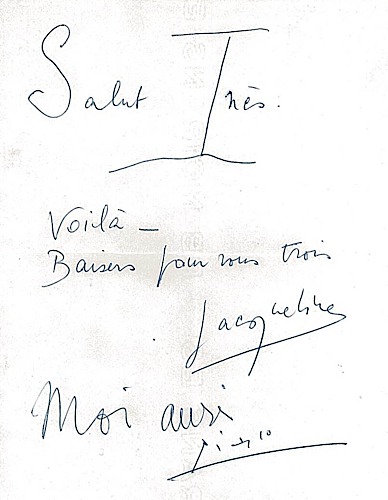 Salut Inès.
Voilà –
Baisers pour vous trois
Jacqueline
Moi aussi
Picasso